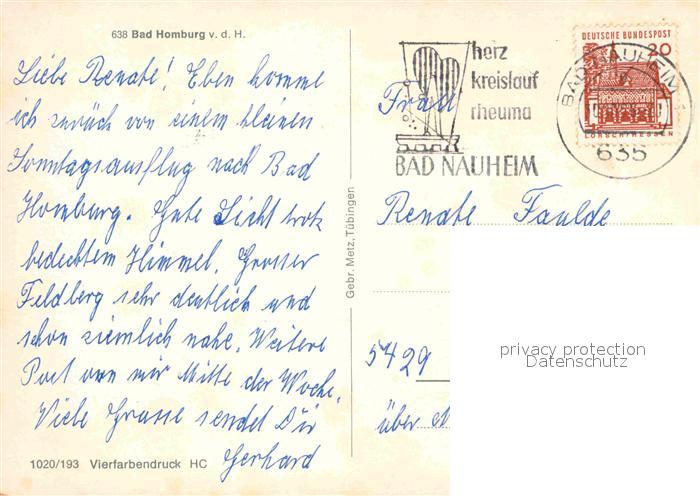 638 Bad Homburg v. d. H.
Liebe Renate! Eben komme
ich zurück von einem kleinen
Sonntagsausflug nach Bad
Homburg. Gute Sicht trotz
bedecktem Himmel. Grosser
Feldberg sehr deutlich und
schon ziemlich nahe. Weitere
Post von mir Mitte der Woche.
Viele Grüsse sendet Dir
Gerhard
1020/193 Vierfarbendruck HC
Gebr. Metz, Tübingen
herz
kreislauf
rheuma
BAD NAUHEIM
DEUTSCHE BUNDESPOST
20
LORSCH/HESSEN
BAD NAUHEIM
635
Frau
Renate Faulde
5429
über
privacy protection
Datenschutz